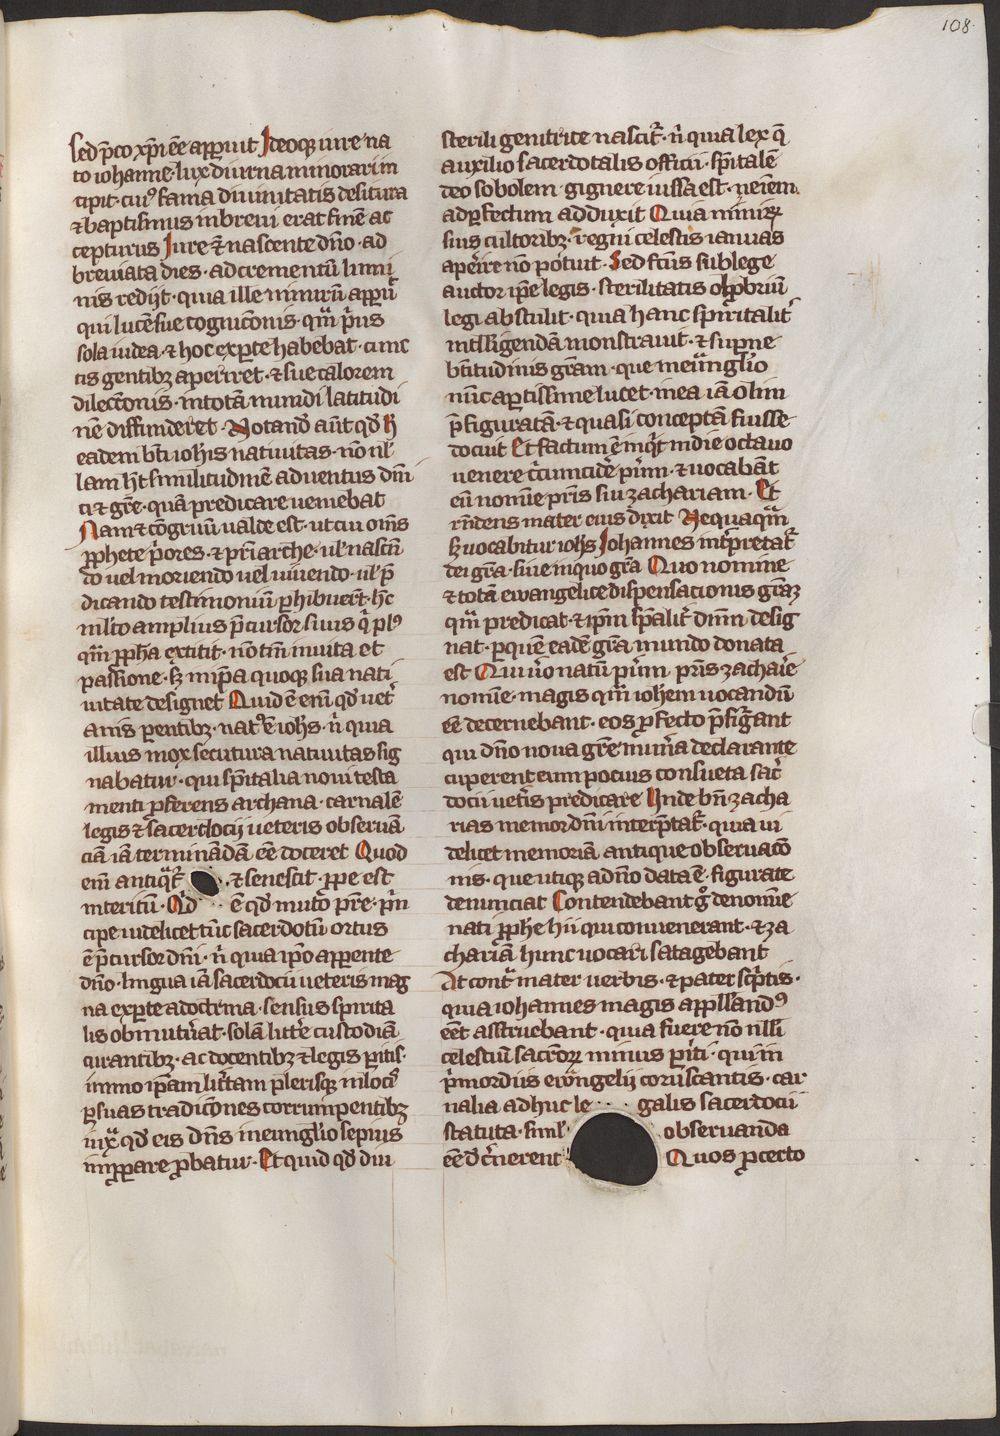 108.
sed p̄co xp̄i ēe apparuit Ideoq; iure na
to iohanne· lux diurna minorari in
cipit· cui⁹ fama diuinitatis desitura
⁊ baptismus in breui erat finē ac
cepturus Iure ⁊ nascente dn̄o· ad
breuiata dies· ad crementū lumi
nis redijt· quia ille nimirū apparuit
qui lucē sue cognic̄onis· qm̄ p̄us
sola iudea· ⁊ hoc ex parte habebat· cunc
tis gentibꝫ aperiret· ⁊ sue calorem
dilecc̄onis· in totā mundi latitudi
nē diffunderet· Notand̄ aūt qd̄ h̄
eadem bt̄i ioh̄is natiuitas· nō nl̄
lam h̄t similitudinē aduentus dn̄i
ci ⁊ gr̄e· quā predicare ueniebat
Nam ⁊ cōgruū ualde est· ut cui om̄s
ꝓphete p̄ores· ⁊ pr̄iarche· ul̓ nascēn
do uel moriendo uel uiuendo· ul̓ p̄
dicando testimoniū ꝑhibuerūt· hic
m̄lto amplius p̄cursor suus q̄ pl⁹
qm̄ ꝓph̄a extitit· nō tm̄ in uita et
passione· sꝫ in ip̄a quoqꝫ sua nati
uitate designet Quid ē enī qd̄ uet̄
anis parentibꝫ· nat⁹ ē ioh̄s· n̄ quia
illius mox secutura natiuitas sig
nabatur· qui sp̄italia noui testa
menti ꝓferens archana· carnalē
legis ⁊ sacerdocij ueteris obseruā
ciā iā terminādā ēe doceret Quod
enī antiq̄t̄ ⁊ senescit· ꝓpe est
interitū· Qd̄ ē qd̄ muto pr̄e· p̄n
cipe uidelicet tūc sacerdotū ortus
ē p̄cursor dn̄i· n̄ quia ip̄o apparente
dn̄o· lingua iā sacerdocij ueteris mag
na ex parte a doctrina· sensus spirita
lis obmutuerat· solā litt̄e custodiā
curantibꝫ· ac docentibꝫ ⁊ legis ꝑitis·
immo ip̄am litt̄am plerisqꝫ in locis
ꝑ suas tradic̄ones corrumpentibꝫ
iuxͣ qd̄ eis dn̄s in eūnglio sepius
improperare ꝓbatur· Et quid qd̄ diu
sterili genitrice nascit̄· n̄ quia lex q̄
auxilio sacerdotalis officii· sp̄italē
deo sobolem gignere iussa est· neīem
ad perfectum adduxit Quia nimirꝝ
suis cultoribꝫ· regni celestis ianuas
aperire nō potuit· Sed fc̄us sub lege
auctor ip̄e legis· sterilitatis obprriuū
legi abstulit· quia hanc spiritalit̄
intelligendam monstrauit· ⁊ superne
bt̄itudinis gr̄am· que in eūnglio
nūc apertissime lucet· in ea iā olim
p̄figuratā· ⁊ quasi conceptā fuisse
docuit Et factum ē inq̄t in die octauo
uenere c̄cumcid̓e pu̓m· ⁊ uocabāt
eū nomīe pr̄is sui zachariam· Et
rn̄dens mater eius dixit Nequaq̄m
sꝫ uocabitur ioh̄s Iohannes int̓pretat̄
dei gr̄a· siue in quo gr̄a Quo nomine
⁊ totā ewangelice dispensacionis gr̄aꝫ
qm̄ predicat· ⁊ ip̄m sp̄alit̄ dn̄m desig
nat· ꝑ quē eadē gr̄a mundo donata
est Qui u̓o natū pu̓m pr̄is zacharie
nomīe· magis qm̄ ioh̄em uocandū
ēe decernebant· eos ꝓfecto p̄figͣrant
qui dn̄o noua gr̄e mun̓a declarante
cuperent eum pocius consueta sac̓
docii uet̓is predicare Unde bn̄ zacha
rias memor dn̄i interp̄tat̄· quia ui
delicet memoriā antique obseruac̄o
nis· que utiqꝫ a dn̄o data ē· figurate
denunciat Contendebant g̊ de nomīe
nati ꝓph̄e hii qui conuenerant· ⁊ za
chariā hunc uocari satagebant
At contͣ mater uerbis· ⁊ pater sc̓ptis·
quia iohannes magis appelland⁹
eēt asstruebant· quia fuere nō nlli
celestiū sacr̄oꝝ minus ꝑiti· qui in
p̓mordiis ewͣngelij coruscantis· car
nalia adhuc le galis sacerdocii
statuta· simul obseruanda
ēe d̓c̓nerent Quos ꝓ certo